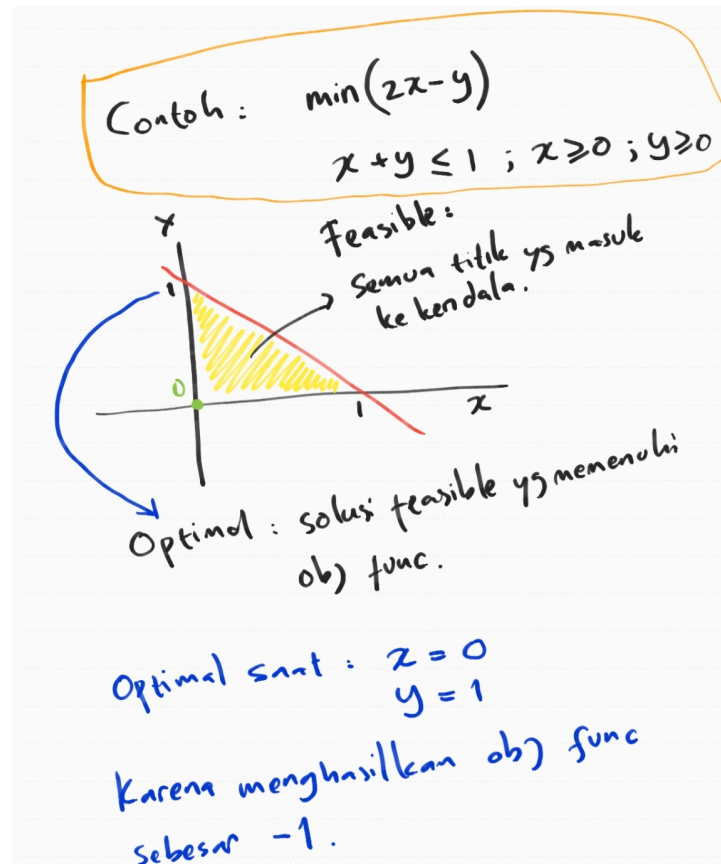 Contoh : min(2x-y)
x + y ≤ 1 ; x ≥ 0 ; y ≥ 0
Feasible :
Semua titik yg masuk
ke kendala.
Y
1
0
1
x
Optimal : solusi feasible yg memenuhi
obj func.
Optimal saat : x = 0
y = 1
Karena menghasilkan obj func
sebesar -1.